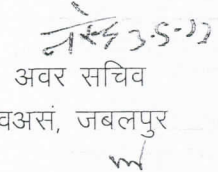 3-5-22
अवर सचिव
वअसं, जबलपुर